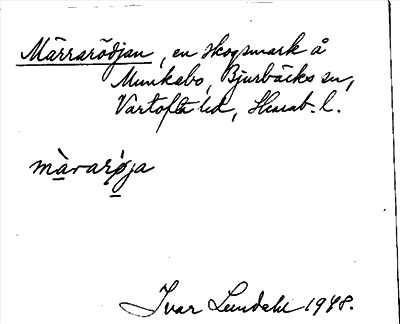 Märrarödjan, en skogsmark å
Munkebo, Bjurbäcks sn,
Vartofta hd, Skarab. l.
màrarø̀ja
Ivar Lundahl 1948.